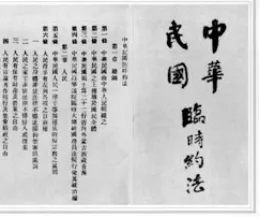 中華
民國
臨時約法
中華民國臨時約法
第一章 總綱
第一條 中華民國由中華人民組織之
第二條 中華民國之主權屬於國民全體
第三條 中華民國領土為二十二行省內外蒙古西藏青海
第四條 中華民國以參議院臨時大總統國務員法院行使其統治權
第二章 人民
第五條 中華民國人民一律平等無種族階級宗教之區別
第六條 人民得享有左列各項之自由權
一 人民之身體非依法律不得逮捕拘禁審問處罰
二 人民之家宅非依法律不得侵入或搜索
三 人民有保有財產及營業之自由
四 人民有言論著作刊行及集會結社之自由